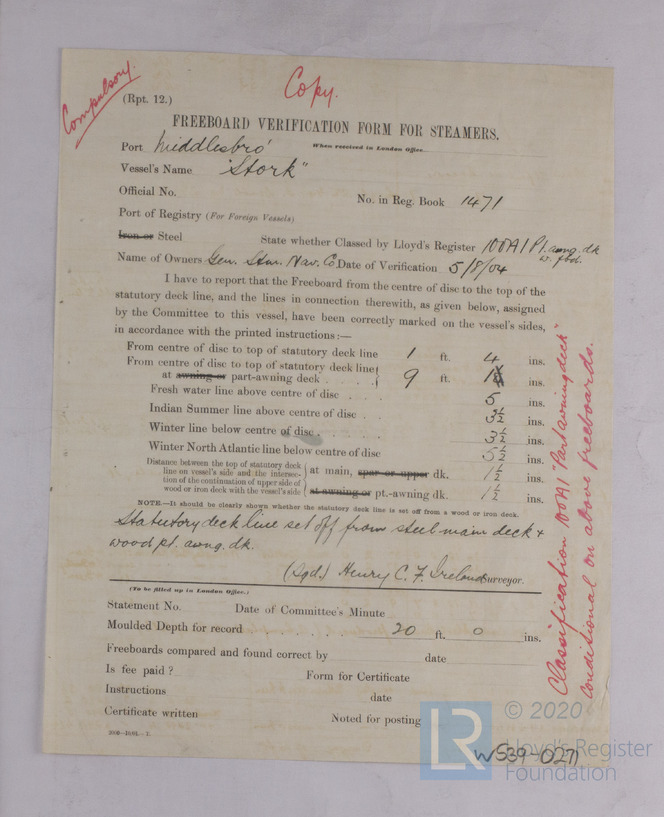 Compulsory.
Copy.
(Rpt. 12.)
FREEBOARD VERIFICATION FORM FOR STEAMERS.
Port Middlesbro' When received in London Office
Vessel's Name "Stork"
Official No. No. in Reg. Book 1471
Port of Registry (For Foreign Vessels)
Iron or Steel State whether Classed by Lloyd's Register 100A1 Pt. awng. dk
w. fbd.
Name of Owners Gen. Stm. Nav. Co. Date of Verification 5/8/04
I have to report that the Freeboard from the centre of disc to the top of the
statutory deck line, and the lines in connection therewith, as given below, assigned
by the Committee to this vessel, have been correctly marked on the vessel's sides,
in accordance with the printed instructions :—
From centre of disc to top of statutory deck line 1 ft. 4 ins.
From centre of disc to top of statutory deck line
at awning or part-awning deck 9 ft. ins.
Fresh water line above centre of disc 5 ins.
Indian Summer line above centre of disc 3½ ins.
Winter line below centre of disc 3½ ins.
Winter North Atlantic line below centre of disc 5½ ins.
Distance between the top of statutory deck
line on vessel's side and the intersec-
tion of the continuation of upper side of
wood or iron deck with the vessel's side
at main, spar or upper dk. 1½ ins.
at awning or pt.-awning dk. 1½ ins.
NOTE.—It should be clearly shown whether the statutory deck line is set off from a wood or iron deck.
Statutory deck line set off from steel main deck +
wood pt. awng. dk.
(Sgd.) Henry C. F. Ireland Surveyor.
(To be filled up in London Office.)
Statement No. Date of Committee's Minute
Moulded Depth for record 20 ft. 0 ins.
Freeboards compared and found correct by date
Is fee paid ? Form for Certificate
Instructions date
Certificate written Noted for posting
Classification 100A1 "Part awning deck"
conditional on above freeboards.
© 2020
LR
Lloyd's Register
Foundation
W539-0271